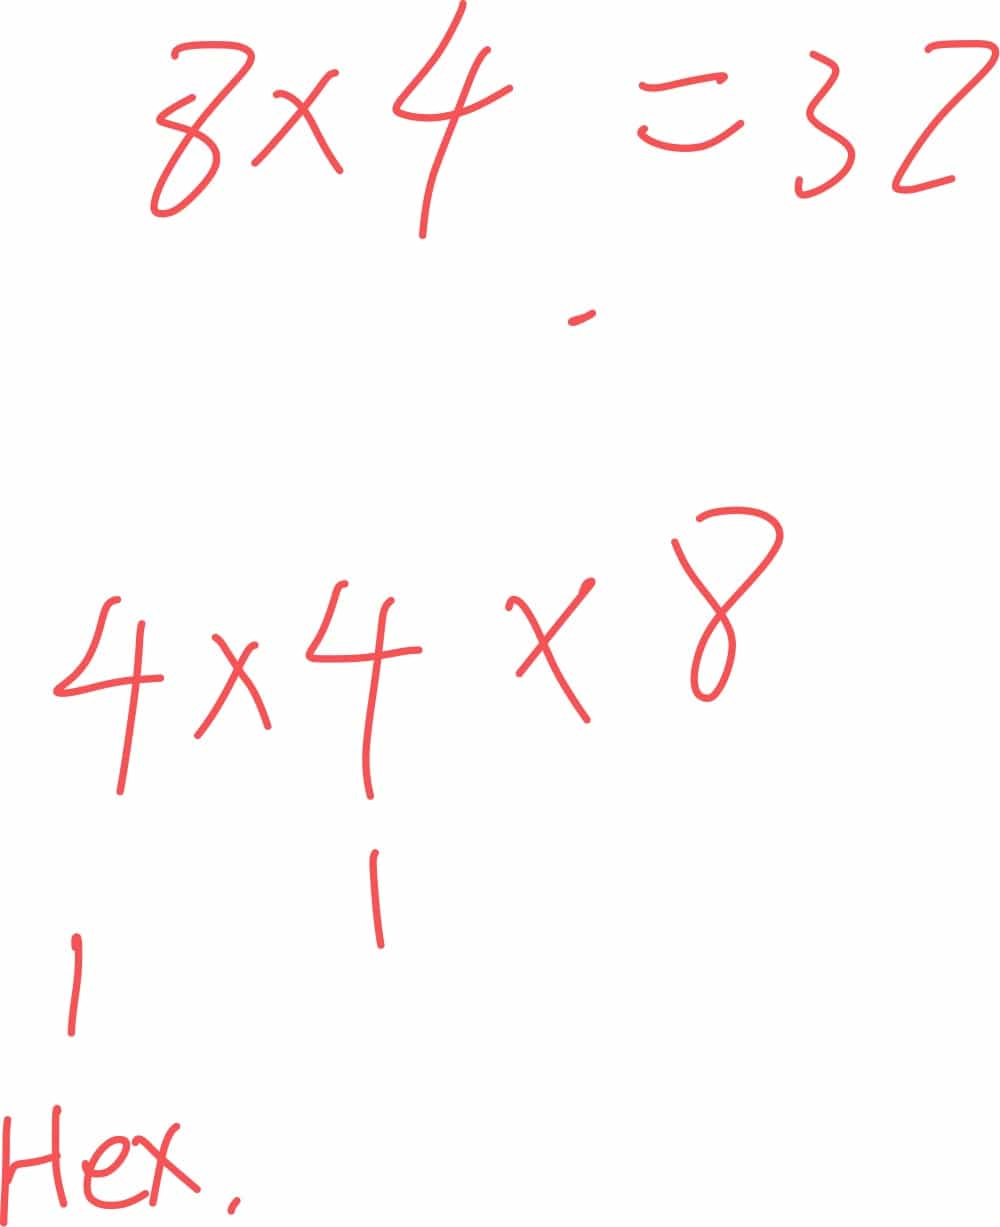 8×4 =32
4×4×8
| |
Hex.